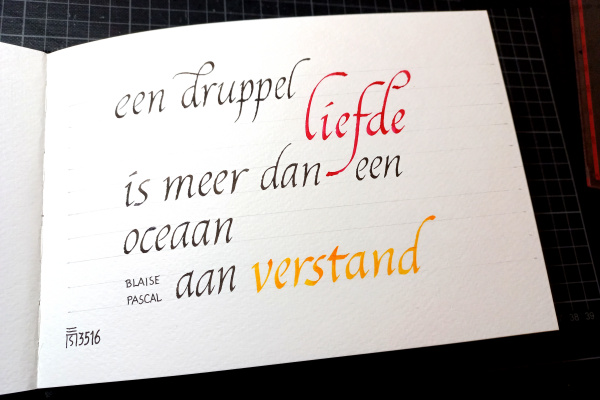 een druppel liefde
is meer dan een
oceaan
BLAISE
PASCAL
aan verstand
3516